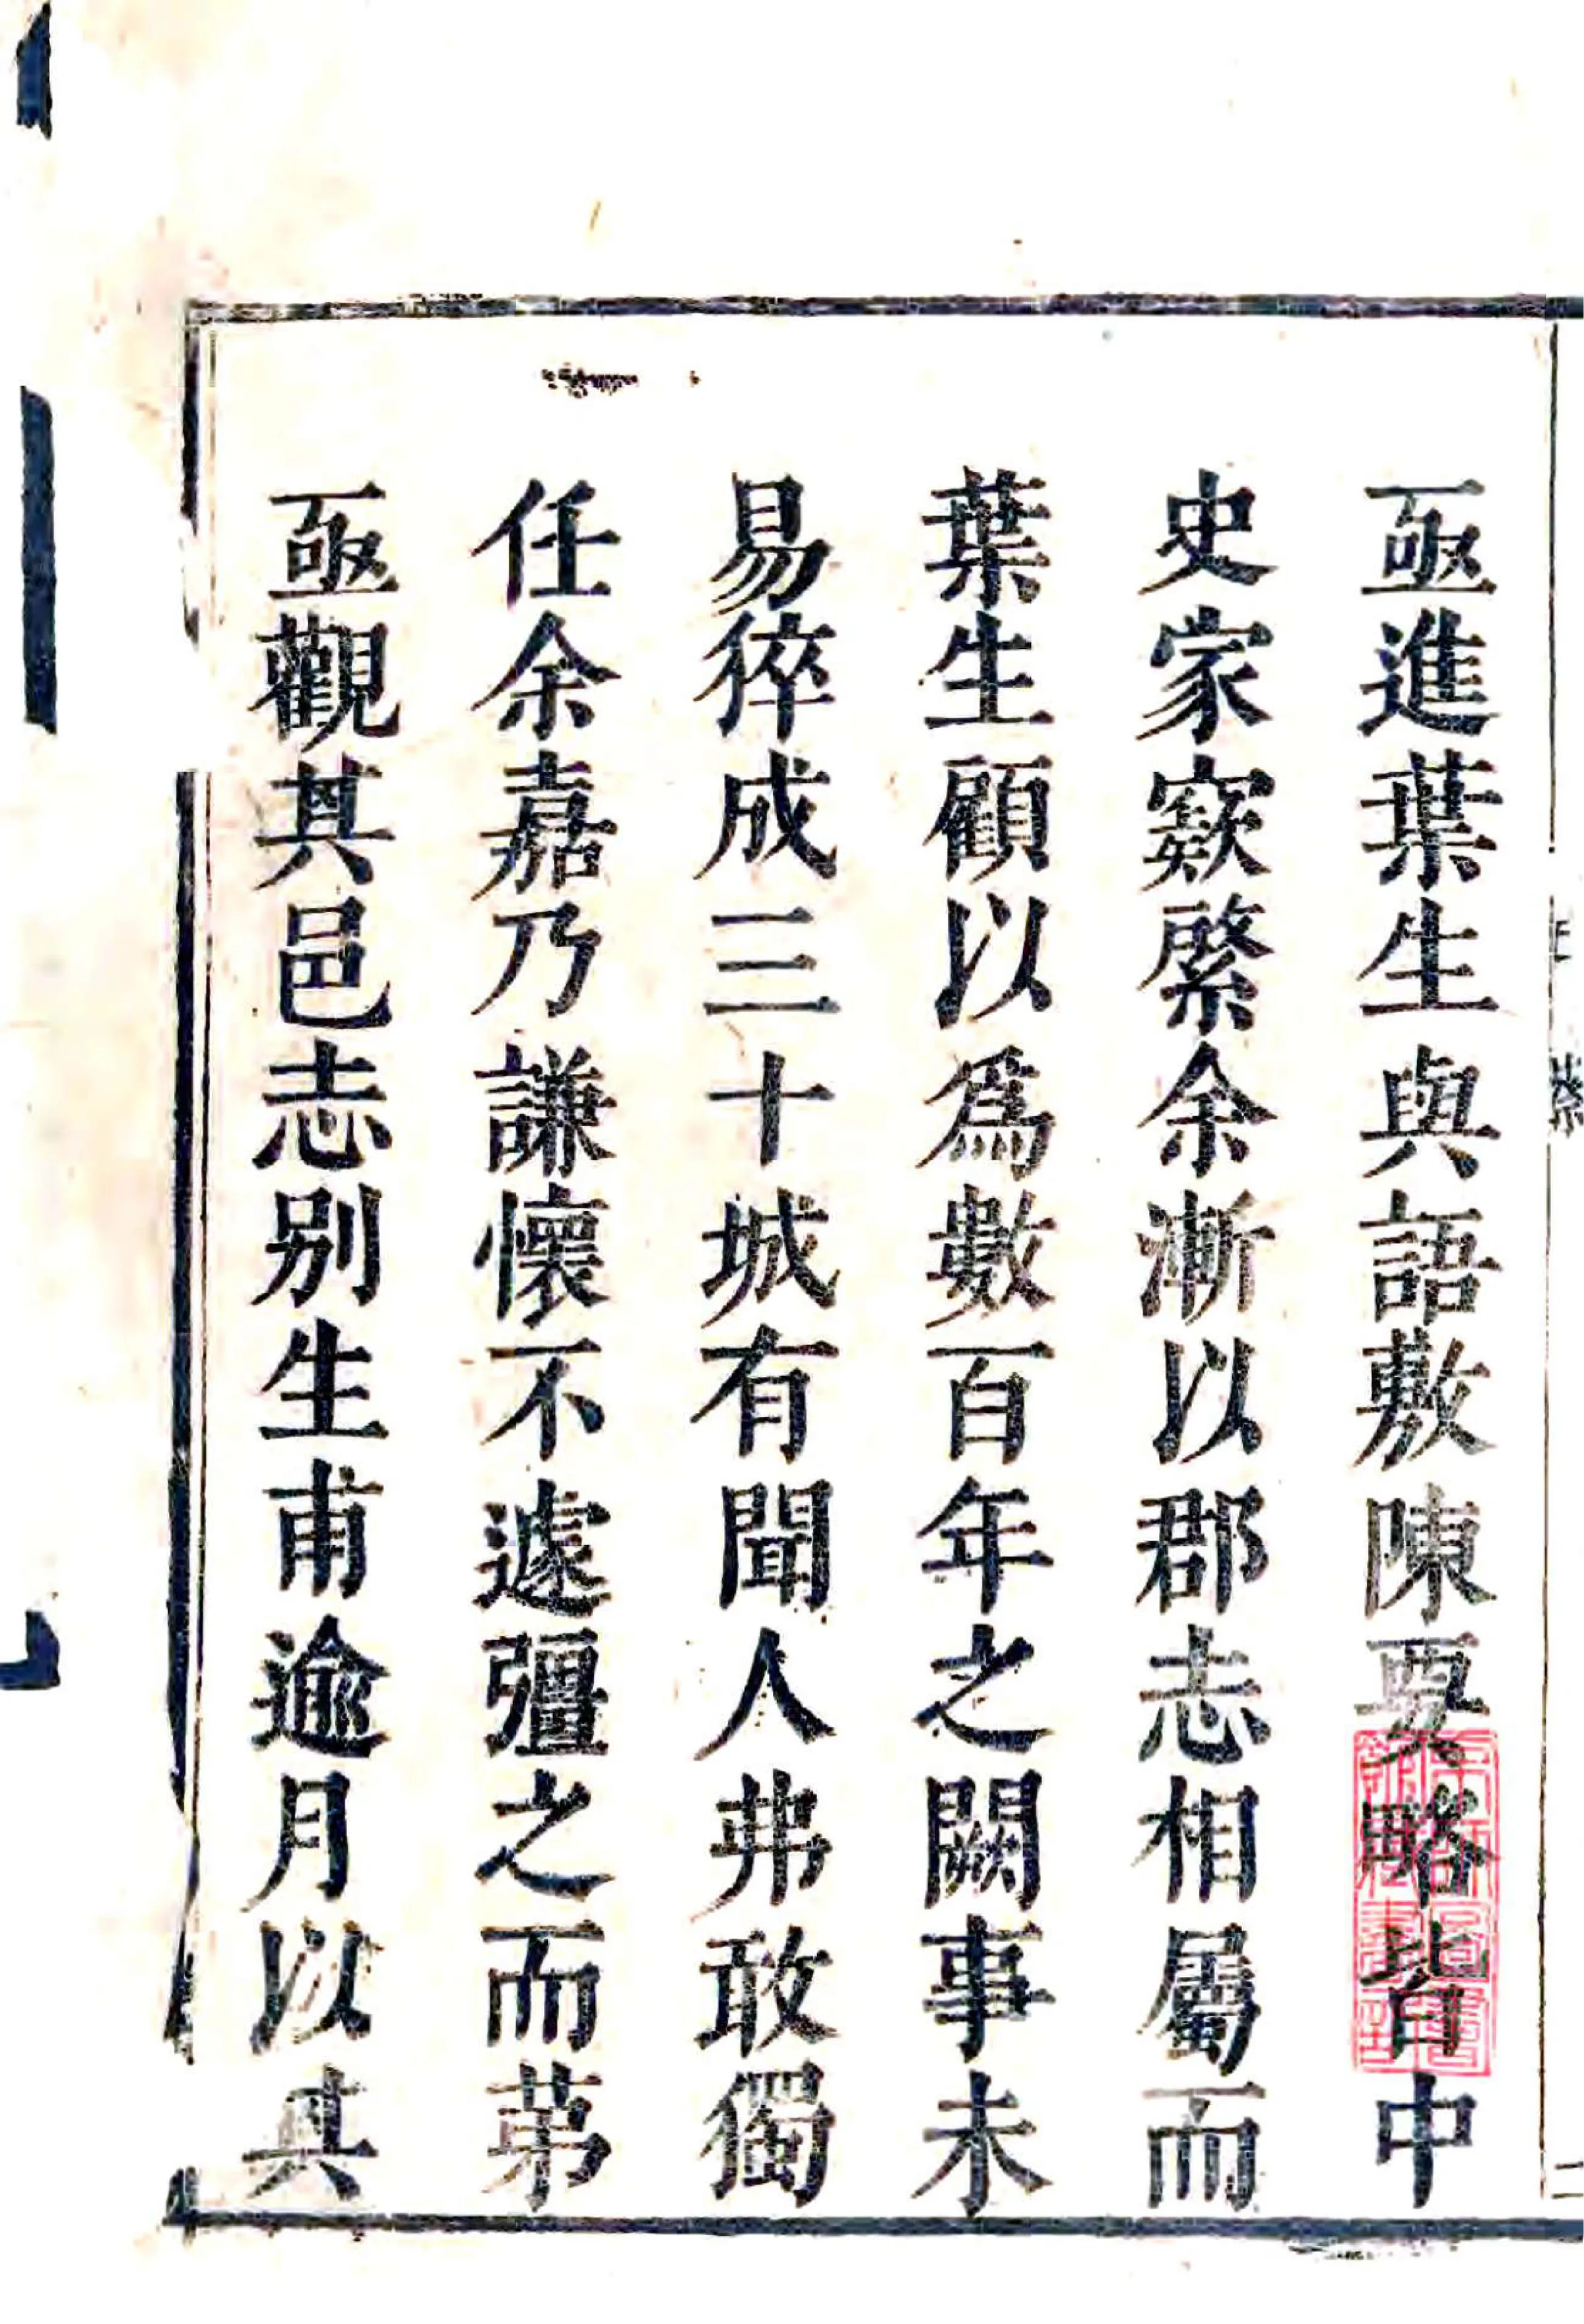 亟進葉生與語敷陳要略皆中
史家窾綮余漸以郡志相屬而
葉生顧以爲數百年之闕事未
易猝成三十城有聞人弗敢獨
任余嘉乃謙懷不遽彊之而苐
亟觀其邑志别生甫逾月以其